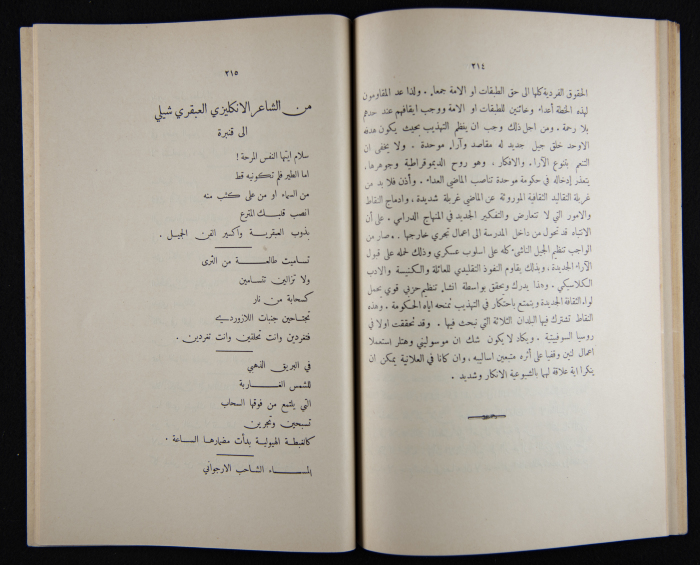 ٢١٤
الحقوق الفردية كلها الى حق الطبقات او الامة جمعاء . ولذا عد المقاومون
لهذه الخطة أعداء وخائنين للطبقات او الامة ووجب ايقافهم عند حدهم
بلا رحمة . ومن اجل ذلك وجب ان ينظم التهذيب بحيث يكون هدفه
الاوحد خلق جيل جديد له مقاصد وآراء موحدة . ولا يخفى ان
التنعم بتنوع الآراء والافكار ، وهو روح الديموقراطية وجوهرها ،
يتعذر إدخاله في حكومة موحدة تناصب الماضي العداء . وأذن فلا بد من
غربلة التقاليد الثقافية الموروثة عن الماضي غربلة شديدة ، وادماج النقاط
والامور التي لا تتعارض والتفكير الجديد في المنهاج الدراسي . على أن
الانتباه قد تحول من داخل المدرسة الى اعمال تجري خارجها . فصار من
الواجب تنظيم الجيل الناشئ كله على اسلوب عسكري وذلك لحمله على قبول
الآراء الجديدة ، وبذلك يقاوم النفوذ التقليدي للعائلة والكنيسة والادب
الكلاسيكي . وهذا يدرك ويحقق بواسطة انشاء تنظيم حزبي قوي يحمل
لواء الثقافة الجديدة ويتمتع باحتكار في التهذيب تمنحه اياه الحكومة . وهذه
النقاط تشترك فيها البلدان الثلاثة التي نبحث فيها . وقد تحققت اولا في
روسيا السوفيتية . ويكاد لا يكون شك ان موسوليني وهتلر استعملا
اعمال لنين وقفيا على أثره متبعين اساليبه ، وان كانا في العلانية يمكن ان
ينكرا اية علاقة لهما بالشيوعية الانكار وشديد .
٢١٥
من الشاعر الانكليزي العبقري شيلي
الى قنبرة
سلام ايتها النفس المرحة !
اما الطير فلم تكونيه قط
من السماء او من على كثب منه
انصب قلبك المترع
بذوب العبقرية واكسير الفن الجميل .
تساميت طالعة من الثرى
ولا تزالين تتسامين
كسحابة من نار
تجتاحين جنبات اللازوردية
فتغردين وانت تحلقين وانت تغردين .
في البريق الذهبي
للشمس الغاربة
التي يلتمع من فوقها السحاب
تسبحين وتجرين
كالغبطة الهيولية بدأت مضمارها الساعة .
المساء الشاحب الارجواني